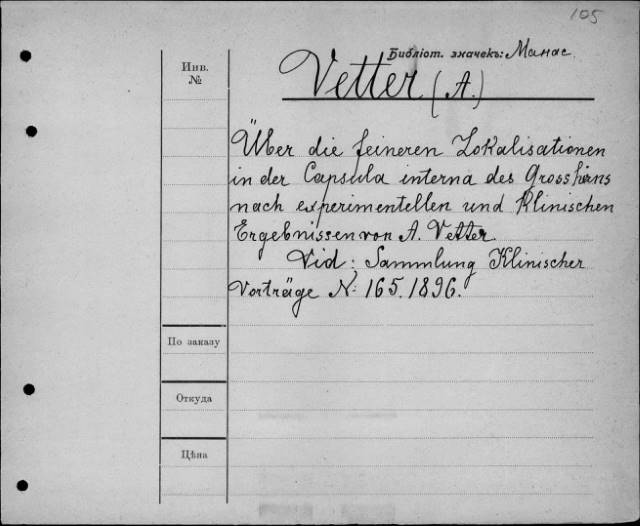 105
Библіот. значекъ: Манас.
Инв.
№
Vetter (A.)
Über die feineren Lokalisationen
in der Capsula interna des Grosshirns
nach experimentellen und Klinischen
Ergebnissen von A. Vetter.
Vid: Sammlung Klinischer
Vorträge N: 165. 1896.
По заказу
Откуда
Цѣна